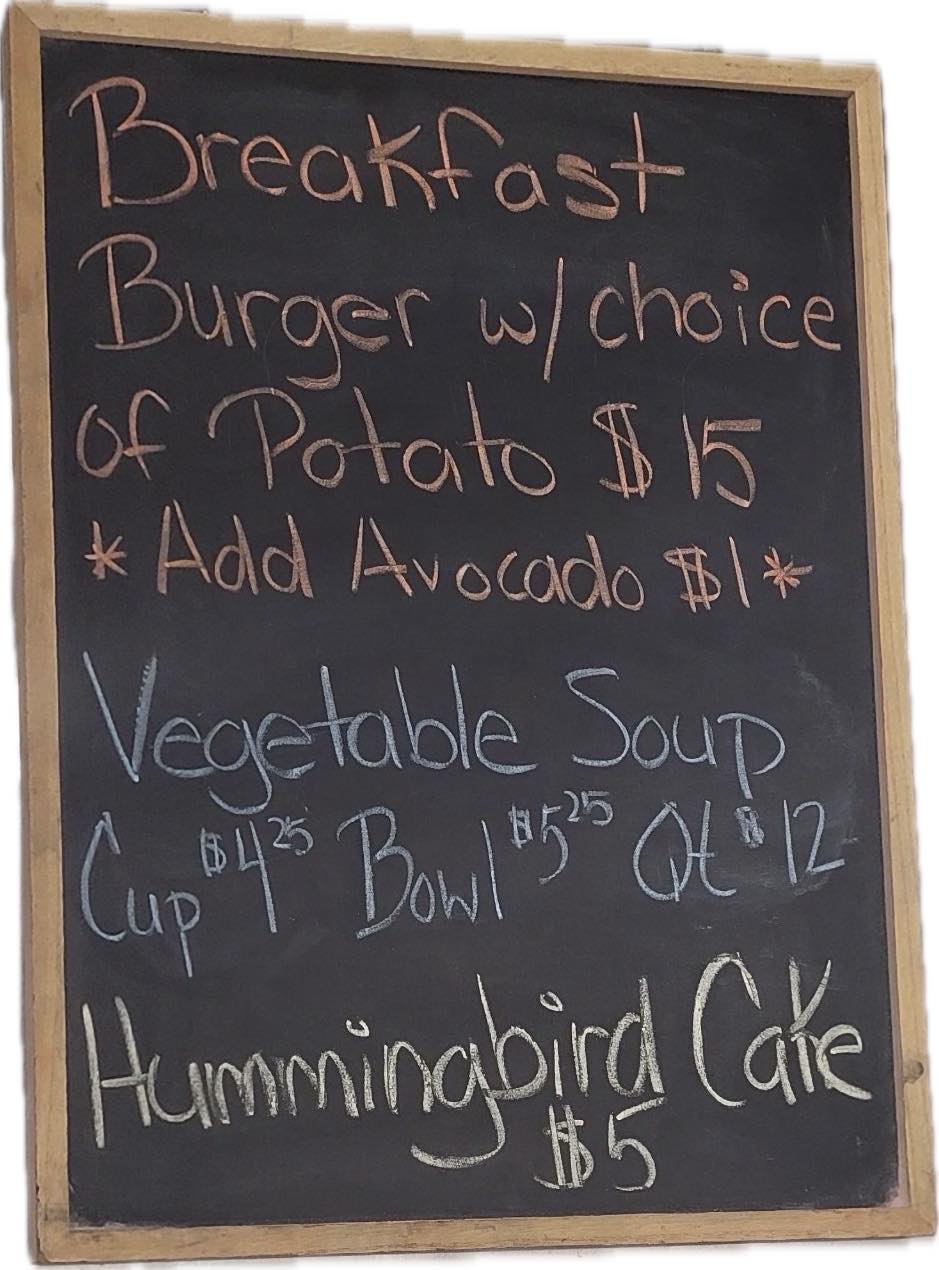 Breakfast
Burger w/choice
of Potato $15
*Add Avocado $1*
Vegetable Soup
Cup $4.25 Bowl $5.25 Qt $12
Hummingbird Cake
$5